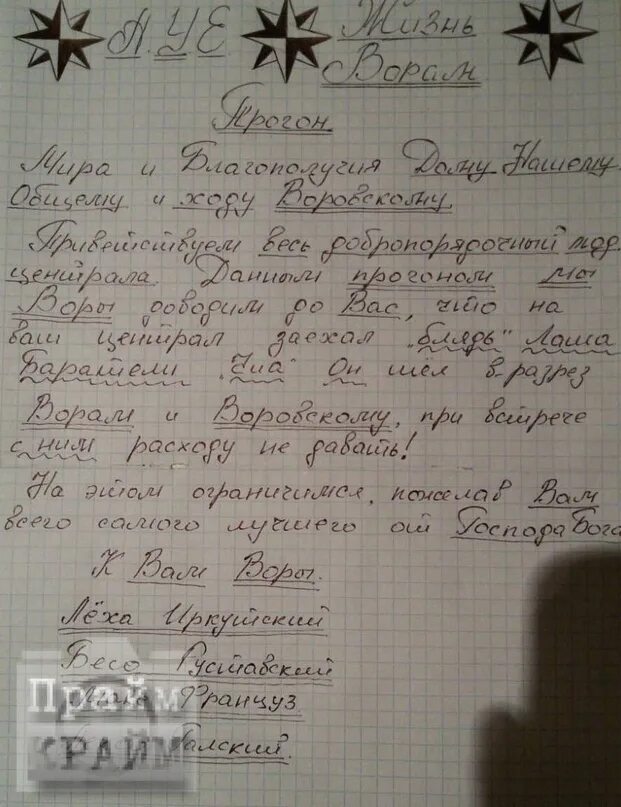 А.УЕ Жизнь
Ворам
Прогон.
Мира и Благополучия Дому Нашему
Общему и ходу Воровскому.
Приветствуем весь добропорядочный люд
централа. Данным прогоном мы
Воры доводим до Вас, что на
ваш централ заехал "блядь" Лаша
Баратели "Чиа" Он шёл в-разрез
Ворам и Воровскому, при встрече
с ним расходу не давать!
На этом ограничимся, пожелав Вам
всего самого лучшего от Господа Бога
К Вам Воры.
Лёха Иркутский
Бесо Руставский
Француз
Прайм
КРАЙМ